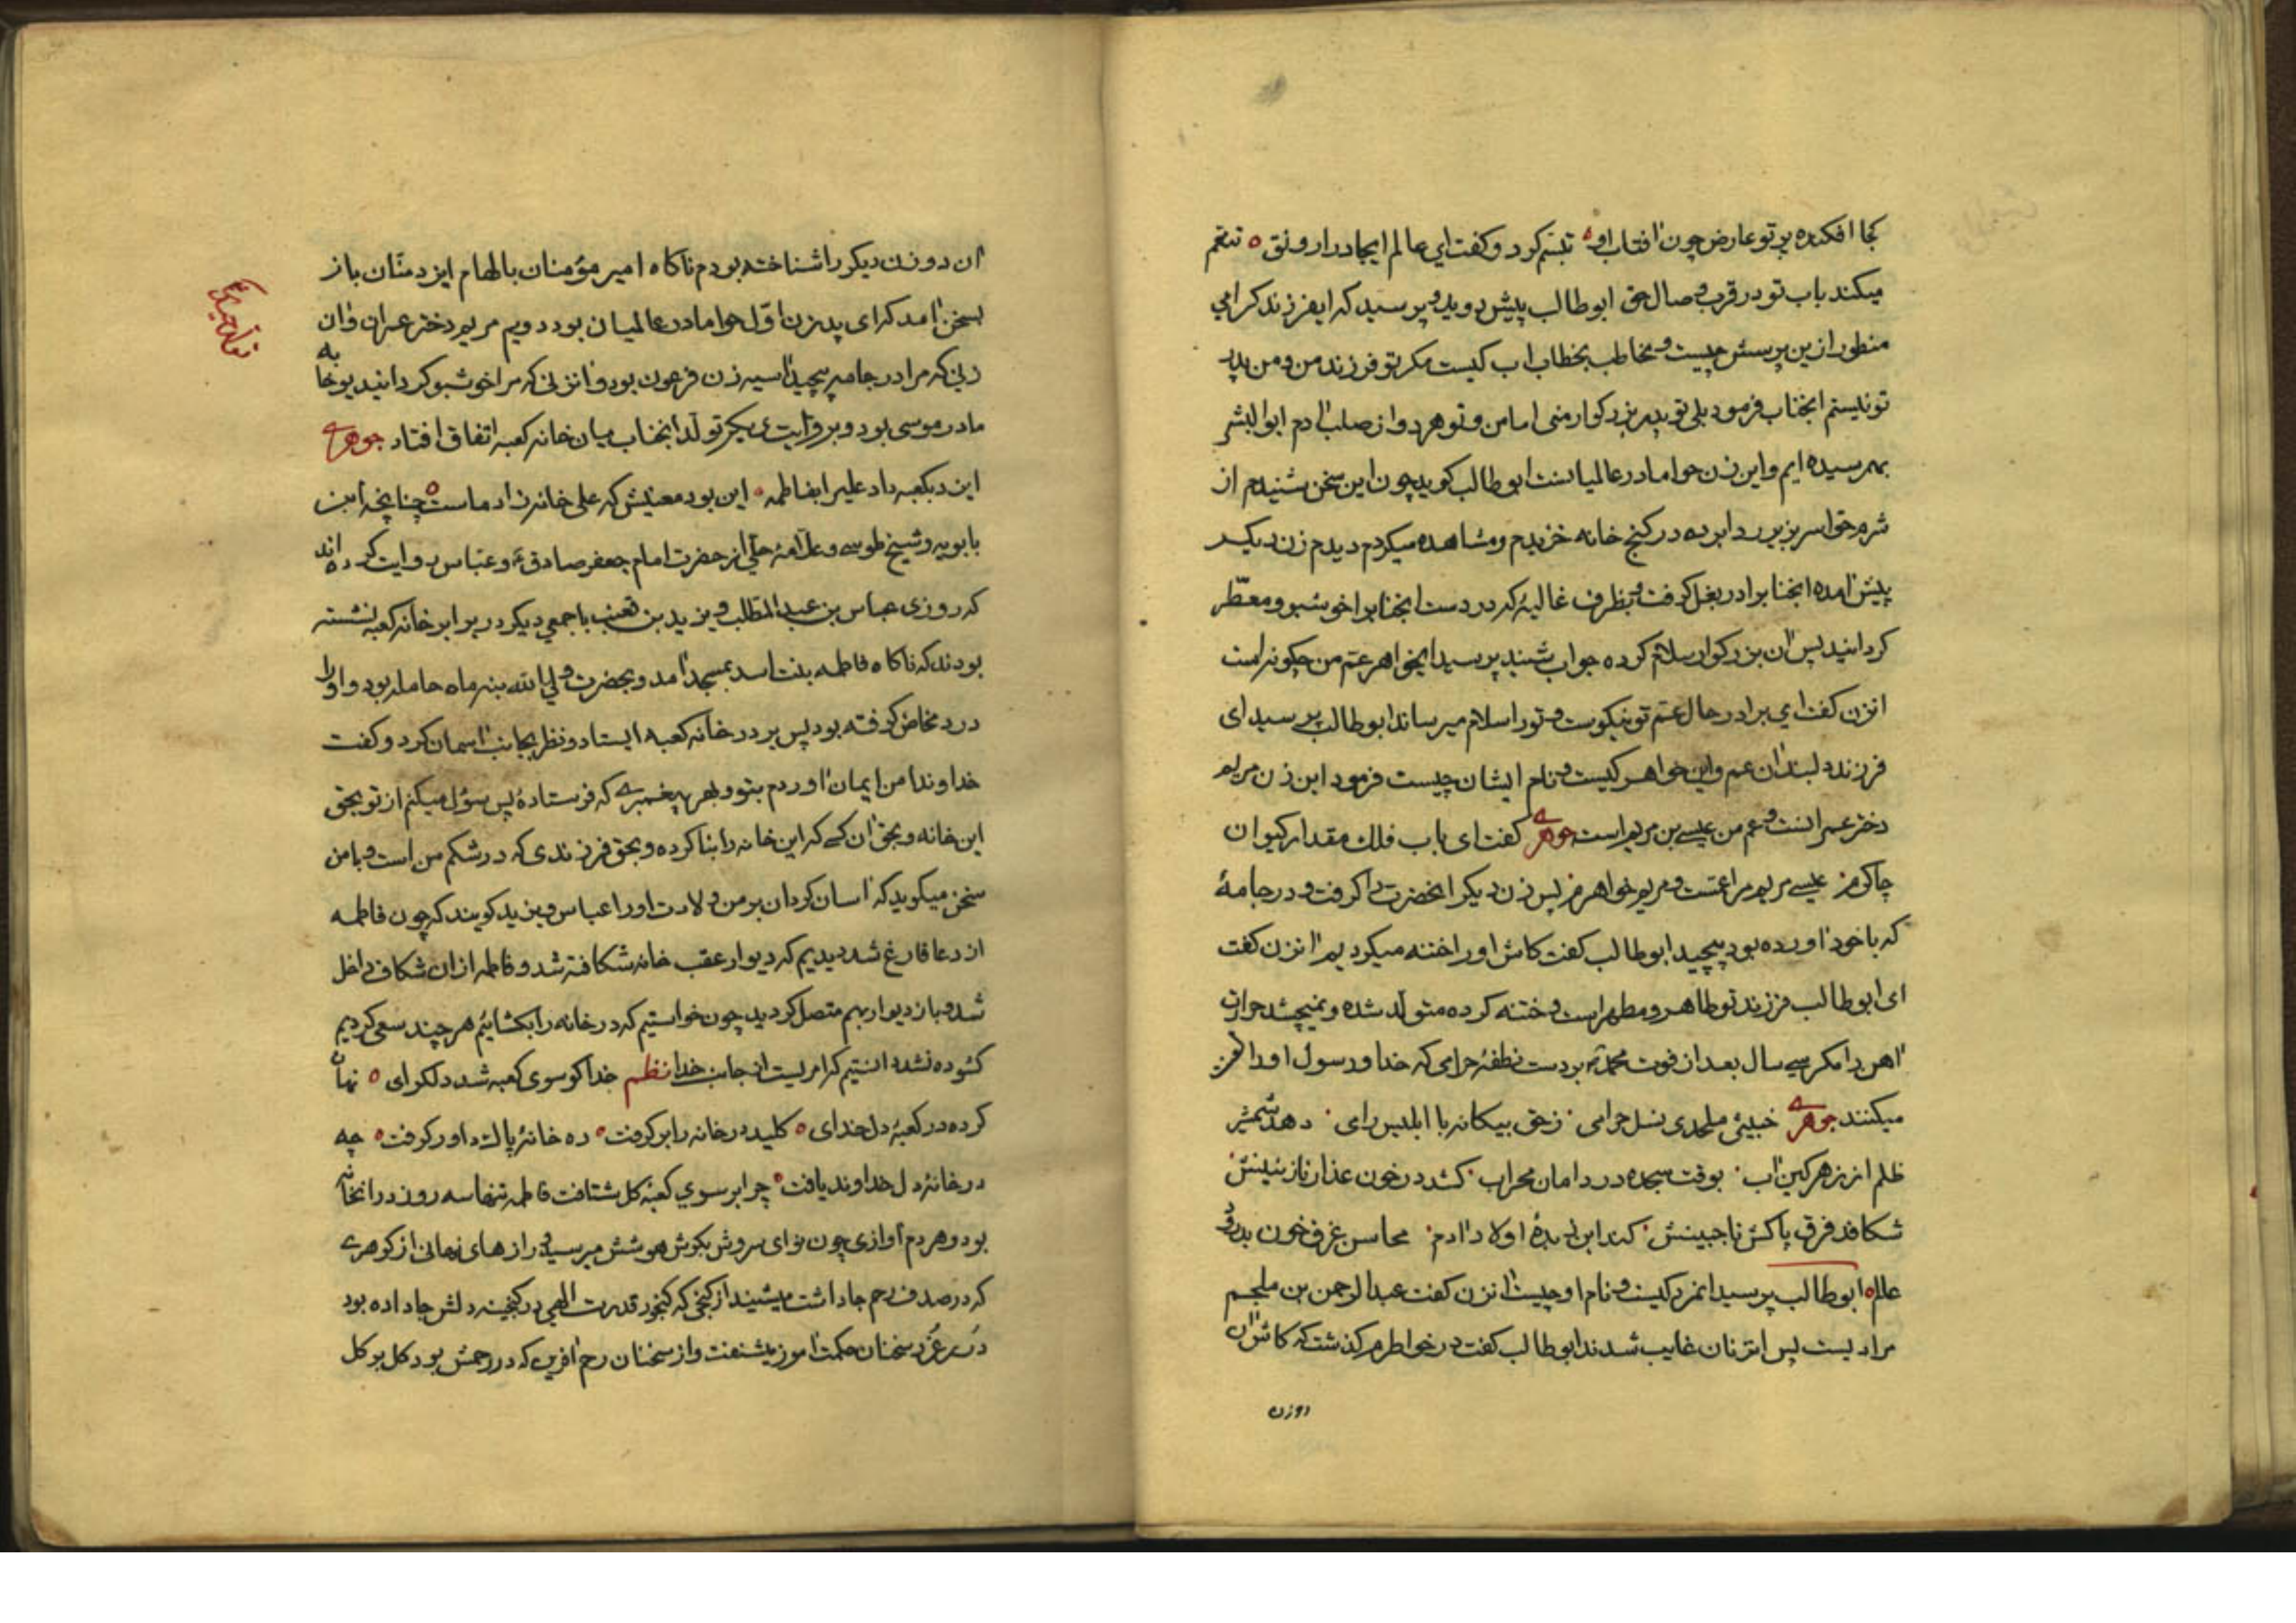 کجا افکنده پرتو عارض چون افتاب او تبسّم کرد و کفت ای عالم ایجاد را رونق تنعّم
میکند باب تو در قرب وصال حق ابوطالب پیش دوید و پرسید که ایفرزند کرامی
منظور ازین پرسش چیست و مخاطب بخطاب اب کیست مکر تو فرزند من و من پدر
تو نیستم انجناب فرمود بلی تو پدر بزرکوار منی اما من و تو هر دو از صلب ادم ابوالبشر
بهم رسیده ایم و این زن حوا مادر عالمیانست ابوطالب کوید چون این سخن شنیدم از
شرم حوا سر بزیر ردا برده در کنج خانه خزیدم و مشاهده میکردم دیدم زن دیکر
پیش امده انجنابرا در بغل کرفت و بظرف غالیهٔ که در دست انجنابرا خوشبو و معطّر
کردانید پس ان بزرکوار سلام کرده جواب شنید پرسید ایخواهر عمّ من چکونه است
انزن کفت ای برادر حال عمّ تو نیکوست و تو را سلام میرساند ابوطالب پرسید ای
فرزند دلبند ان عم و این خواهر کیست و نام ایشان چیست فرمود این زن مریم
دختر عمرانست و عم من عیسی بن مریم است جوهری کفت ای باب فلک مقدار کیوان
چاکر من عیسی مریم مرا عمّست و مریم خواهرم پس زن دیکر انحضرت را کرفت و در جامهٔ
که با خود اورده بود پیچید ابوطالب کفت کاش او را ختنه میکردیم انزن کفت
ای ابوطالب فرزند تو طاهر و مطهر است و ختنه کرده متولّد شده و نمیچشد حرارت
اهن را مکر سی سال بعد از فوت محمد بر دست نطفهٔ حرامی که خدا و رسول او را لعن
میکنند جوهری خبیثی ملحدی نسل حرامی زحق بیکانه با ابلیس رای دهد شمشیر
ظلم از زهر کین اب بوقت سجده در دامان محراب کشد در خون عذار نازنینش
شکافد فرق پاکش تا جبینش کند این زبدهٔ اولاد ادم محاسن غرق خون بدرود
عالم ابوطالب پرسید انمرد کیست و نام او چیست انزن کفت عبدالرحمن بن ملجم
مرادیست پس انزنان غایب شدند ابوطالب کفت در خواطرم کذشت که کاش ان
دوزن
ان دو زن دیکر را شناخته بودم ناکاه امیر مؤمنان بالهام ایزد منّان باز
بسخن امد که ای پدر زن اوّل حوا مادر عالمیان بود دویم مریم دختر عمران و ان
زنی که مرا در جامه پیچید اسیه زن فرعون بود و انزنی که مرا خوشبو کردانید یوخابه
مادر موسی بود و بروایت دیکر تولّد انجناب میان خانه کعبه اتفاق افتاد جوهری
این در بکعبه داد علیرا بفاطمه این بود معنیش که علی خانه زاد ماست چنانچه ابن
بابویه و شیخ طوسی و علّامهٔ حلّی از حضرت امام جعفر صادق و عبّاس روایت کرده اند
که روزی عباس بن عبدالمطلب و یزید بن قعنب با جمعی دیکر در برابر خانه کعبه نشسته
بودند که ناکاه فاطمه بنت اسد بمسجد امد و بحضرت ولی الله بنه ماه حامله بود و او را
درد مخاض کرفته بود پس بر در خانه کعبه ایستاد و نظر بجانب اسمان کرد و کفت
خداوندا من ایمان اوردم بتو و بهر پیغمبری که فرستادهٔ پس سؤل میکنم از تو بحق
این خانه و بحق ان کسی که این خانه را بنا کرده و بحق فرزندی که در شکم من است و با من
سخن میکوید که اسان کردان بر من ولادت او را عباس و یزید کویند که چون فاطمه
از دعا فارغ شد دیدیم که دیوار عقب خانه شکافته شد و فاطمه از ان شکاف داخل
شد و باز دیوار بهم متصل کردید چون خواستیم که در خانه را بکشائیم هر چند سعی کردیم
کشوده نشد دانستیم که امریست از جانب خدا نظم خدا کو سوی کعبه شد دلکرای نهان
کرده در کعبهٔ دل خدای کلید در خانه را بر کرفت ره خانهٔ پاک داور کرفت چه
در خانهٔ دل خداوند یافت چرا بر سوی کعبهٔ کل شتافت فاطمه تنها سه روز در انخانه
بود و هر دم اوازی چون نوای سروش بکوش هوشش میرسید و رازهای نهانی از کوهری
که در صدف رحم جا داشت میشنید از کنجی که کنجور قدرت الهی در کنجینه دلش جا داده بود
درر غرر سخنان حکمت اموز میشنفت و از سخنان روح افرین که در رحمش بود کل بر کل